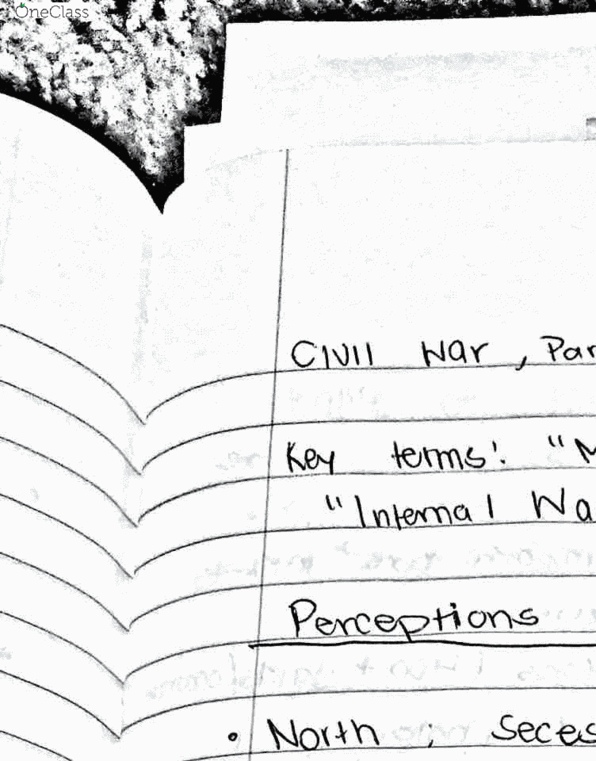 OneClass
Civil War, Par
Key terms: "M
"Internal Wa
Perceptions
• North : Seces